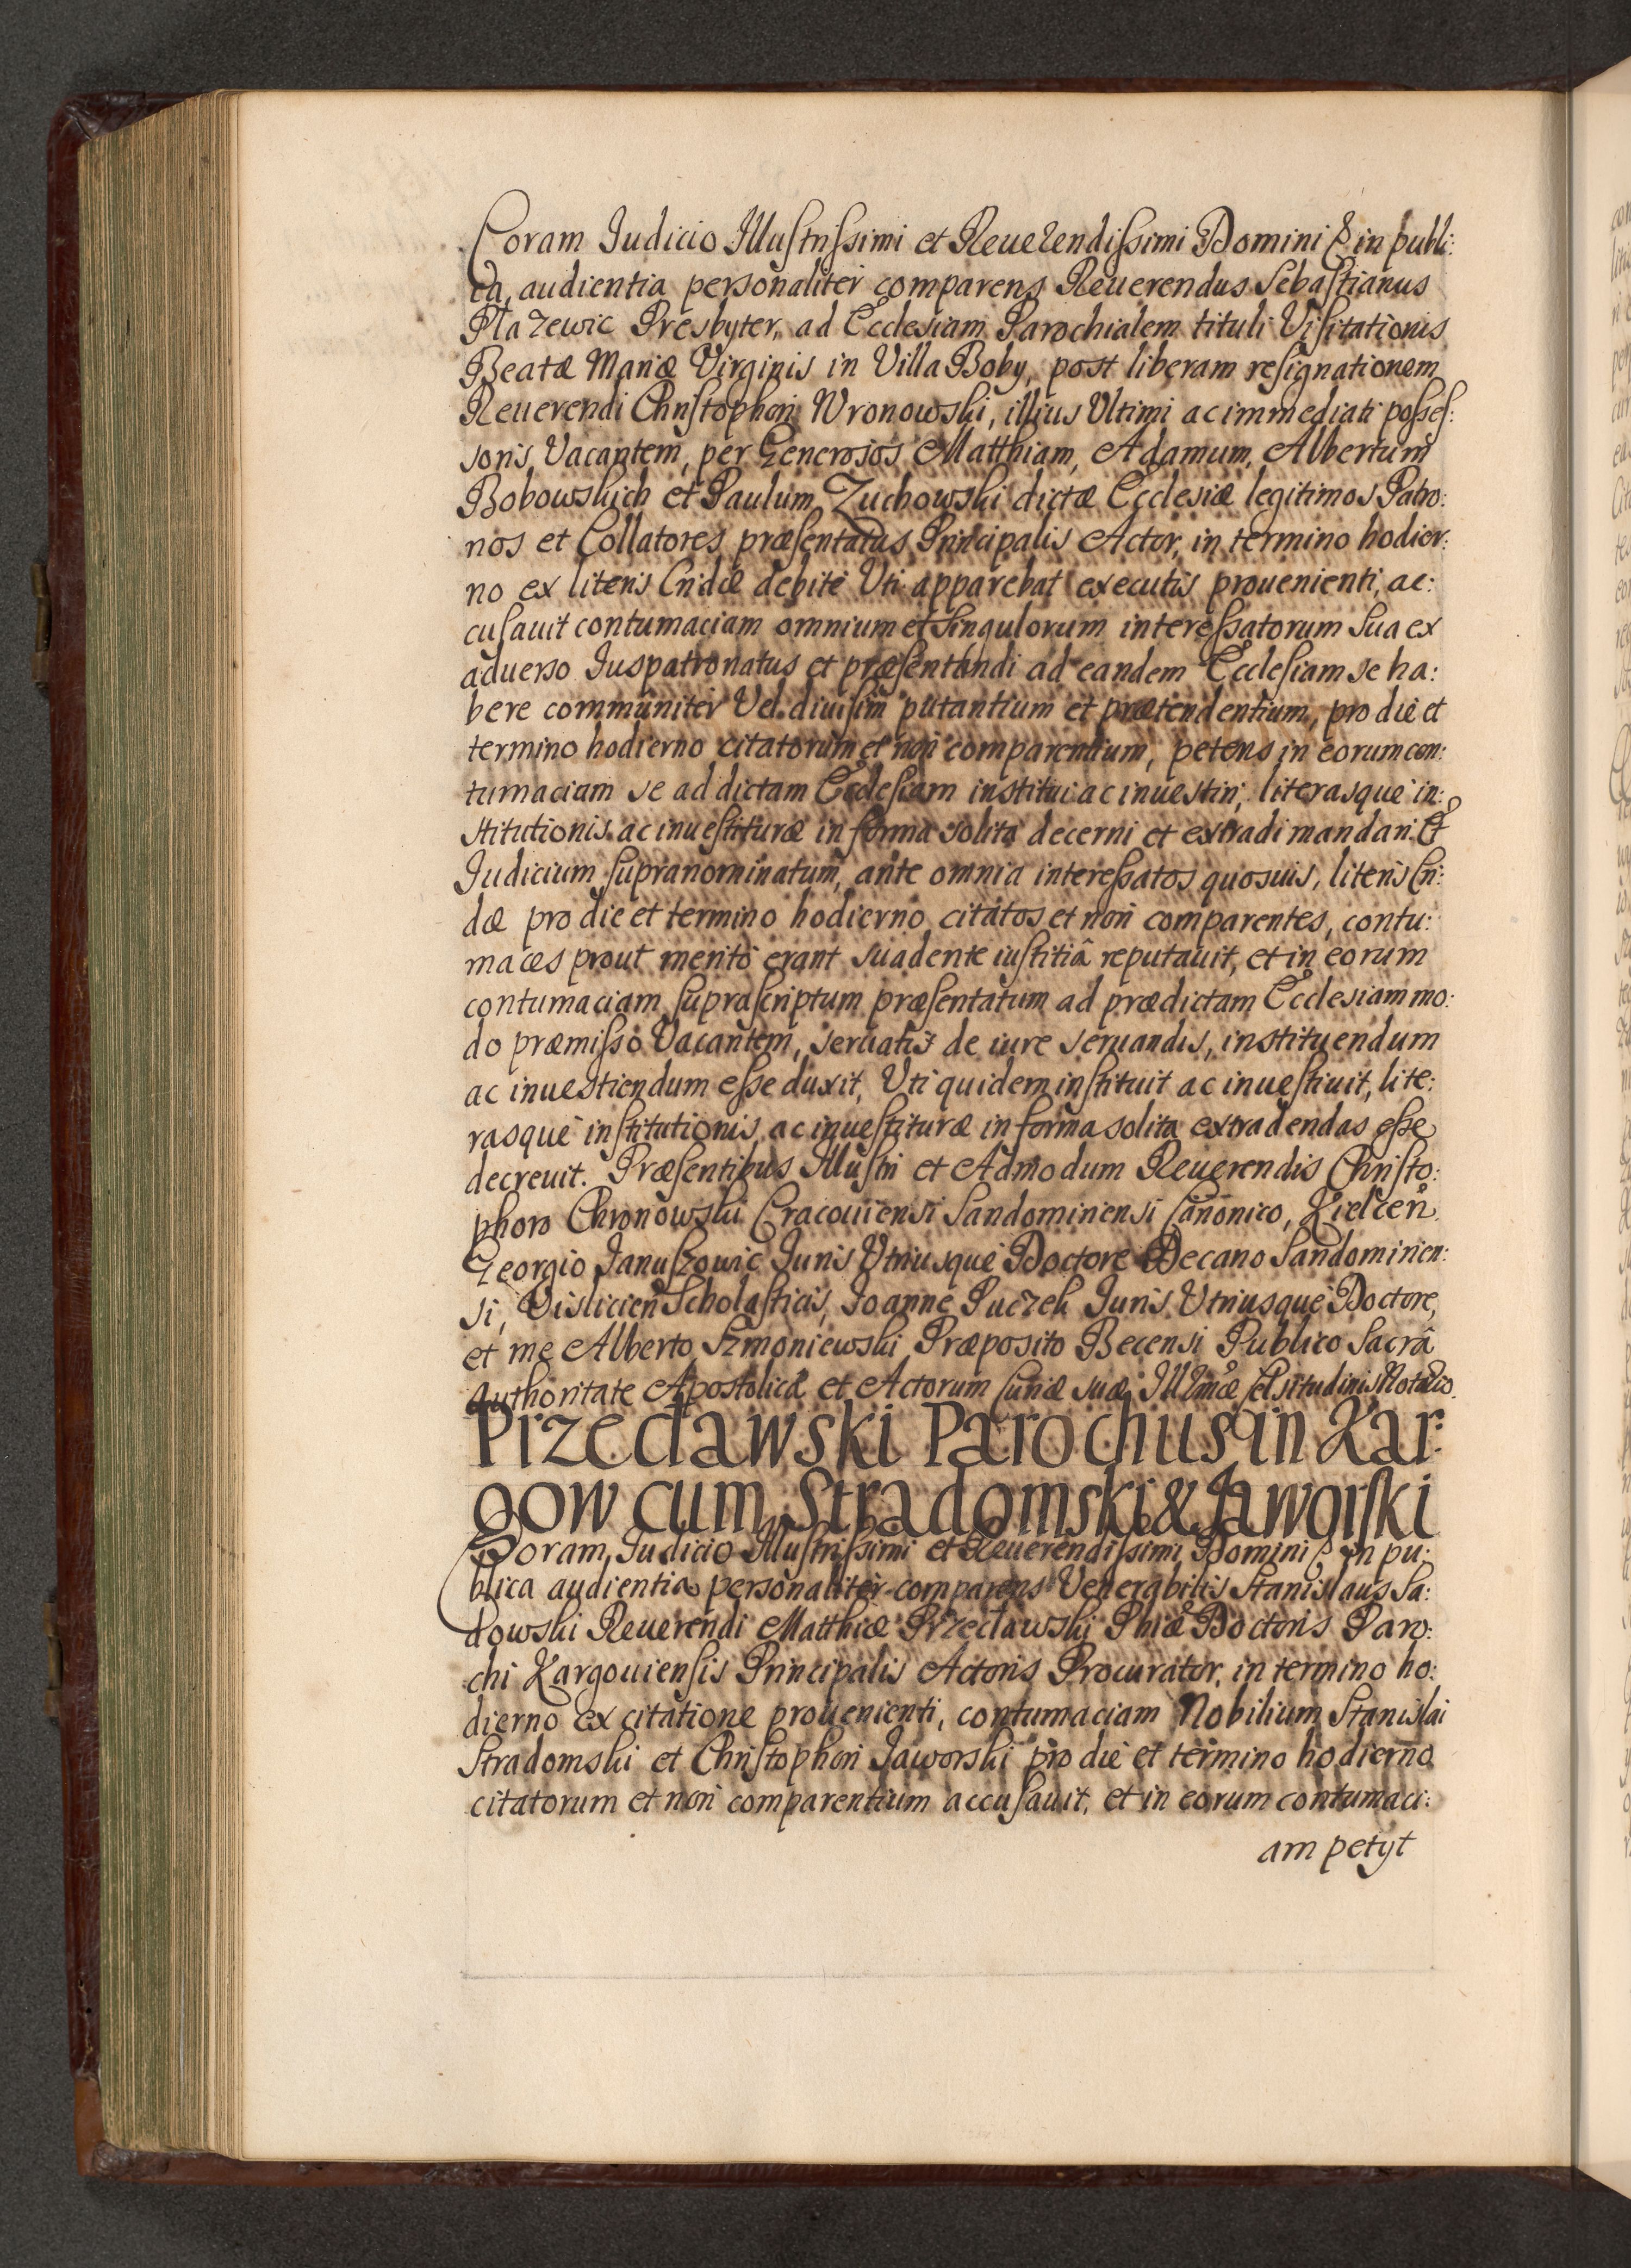 Coram Iudicio Illustrissimi et Reuerendissimi Domini & in publi:
ca audientia personaliter comparens Reuerendus Sebastianus
Plazewic Presbyter, ad Ecclesiam Parochialem tituli Visitationis
Beatæ Mariæ Virginis in Villa Boby, post liberam resignationem
Reuerendi Christophori Wronowski, illius Ultimi ac immediati posses:
soris Vacantem, per Generosos Matthiam, Adamum, Albertum
Bobowskich et Paulum Zuchowski dictæ Ecclesiæ legitimos Patro:
nos et Collatores præsentatus Principalis Actor, in termino hodier:
no ex literis Cridæ debite Uti apparebat executis prouenienti, ac:
cusauit contumaciam omnium et singulorum interessatorum sua ex
aduerso Iuspatronatus et præsentandi ad eandem Ecclesiam se ha:
bere communiter Vel diuisim putantium et prætendentium, pro die et
termino hodierno citatorum et non comparentium, petens in eorum con:
tumaciam se ad dictam Ecclesiam institui ac inuestiri, literasque in:
stitutionis ac inuestituræ in forma solita decerni et extradi mandari. Et
Iudicium supranominatum, ante omnia interessatos quosuis, literis Cri:
dæ pro die et termino hodierno citatos et non comparentes, contu:
maces prout merito erant suadente iustitiâ reputauit, et in eorum
contumaciam suprascriptum præsentatum ad prædictam Ecclesiam mo:
do præmisso Vacantem, seruatis de iure seruandis, instituendum
ac inuestiendum esse duxit, Uti quidem instituit ac inuestiuit, lite:
rasque institutionis ac inuestituræ in forma solita extradendas esse
decreuit. Præsentibus Illustri et Admodum Reuerendis Christo:
phoro Chronowski Cracouiensi Sandominensi Canonico, Kielcen
Georgio Januszowic Iuris Utriusque Doctore Decano Sandominen:
si, Vislicien Scholasticis, Joanne Puczek Iuris Utriusque Doctore,
et me Alberto Szmoniewski Præposito Becensi Publico Sacrâ
Authoritate Apostolicâ et Actorum Curiæ suæ Illmæ Celsitudinis Notario.
Przecławski Parochus in Kar:
gow cum Stradomski & Jaworski
Coram Iudicio Illustrissimi et Reuerendissimi Domini & in pu:
blica audientia personaliter comparens Venerabilis Stanislaus Sa:
dowski Reuerendi Matthiæ Przecławski Phiæ Doctoris Paro:
chi Kargouiensis Principalis Actoris Procurator, in termino ho:
dierno ex citatione prouenienti, contumaciam Nobilium Stanislai
Stradomski et Christophori Jaworski pro die et termino hodierno
citatorum et non comparentium accusauit, et in eorum contumaci:
am petyt